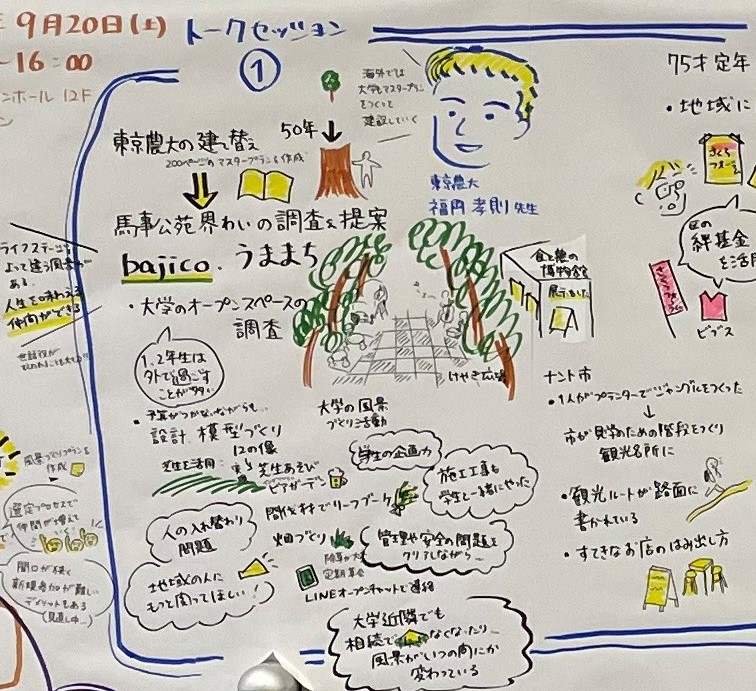 9月20日(土)
16:00
ホール 12F
トークセッション
①
海外では
大学もマスタープラン
をつくって
建設していく
東京農大
福岡孝則先生
東京農大の建て替え
200ページのマスタープランを作成
50年
馬事公苑界わいの調査&提案
bajico. うままち
・大学のオープンスペースの
調査
1、2年生は
外で過ごす
ことが多い
・予算がつかないながらも…
設計 模型づくり
12の像
芝生を活用:
芝生あそび
ビアガーデン
間伐材でリーフブケ
畑づくり
除草が大
定期集会
LINEオープンチャットで連絡
人の入れ替わり
問題
地域の人に
もっと関ってほしい!
大学の風景
づくり活動
学生の企画力
施工工事も
学生と一緒にやった
管理や安全の問題を
クリアしながら…
大学近隣でも
相続で なくなったり…
風景がいつの間にか
変わっている
けやき広場
食と農の
博物館
展示しました
75才定年
・地域に
さくら
フォーラム
区の
絆基金
を活用
ビブス
ナント市
・1人がプランターでジャングルをつくった
市が見学のための階段をつくり
観光名所に
・観光ルートが路面に
書かれている
・すてきなお店のはみ出し方
ライフステージに
よって違う風景が
ある。
人生を味わえる
仲間ができる
風景づくりプランを
作成
選定プロセスで
仲間が増えて
いく
間口が狭く
新規参加が難しい
デメリットもある
(見直し中…)